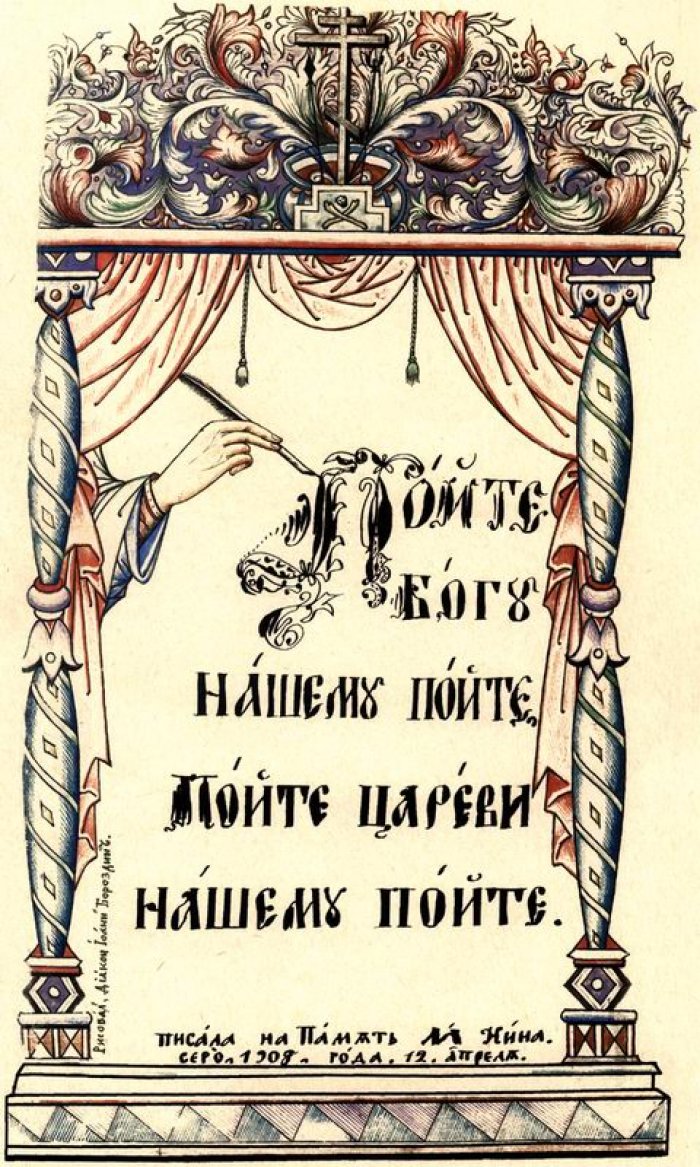 По́йте
Бо́гꙋ
на́шемꙋ по́йте,
По́йте царе́ви
на́шемꙋ по́йте.
писа́ла на Па́мѧть Ни́на.
1908. го́да. 12. апрелѧ.
Рисовал, Діакон Іоанн Бороздинъ.